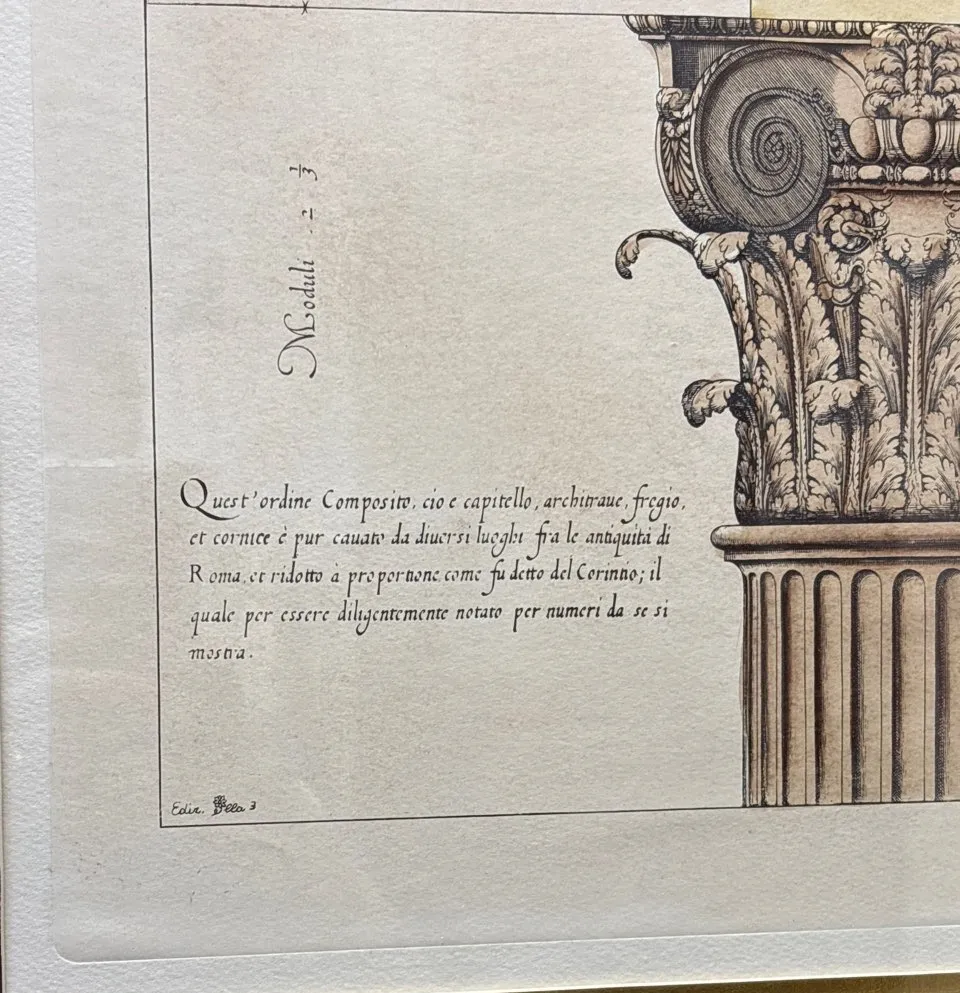 Moduli . 2 1/3
Quest'ordine Composito, cio e capitello, architraue, fregio,
et cornice è pur cauato da diuersi luoghi fra le antiquità di
Roma, et ridotto à proportione come fu detto del Corintio; il
quale per essere diligentemente notato per numeri da se si
mostra.
Ediz. 3